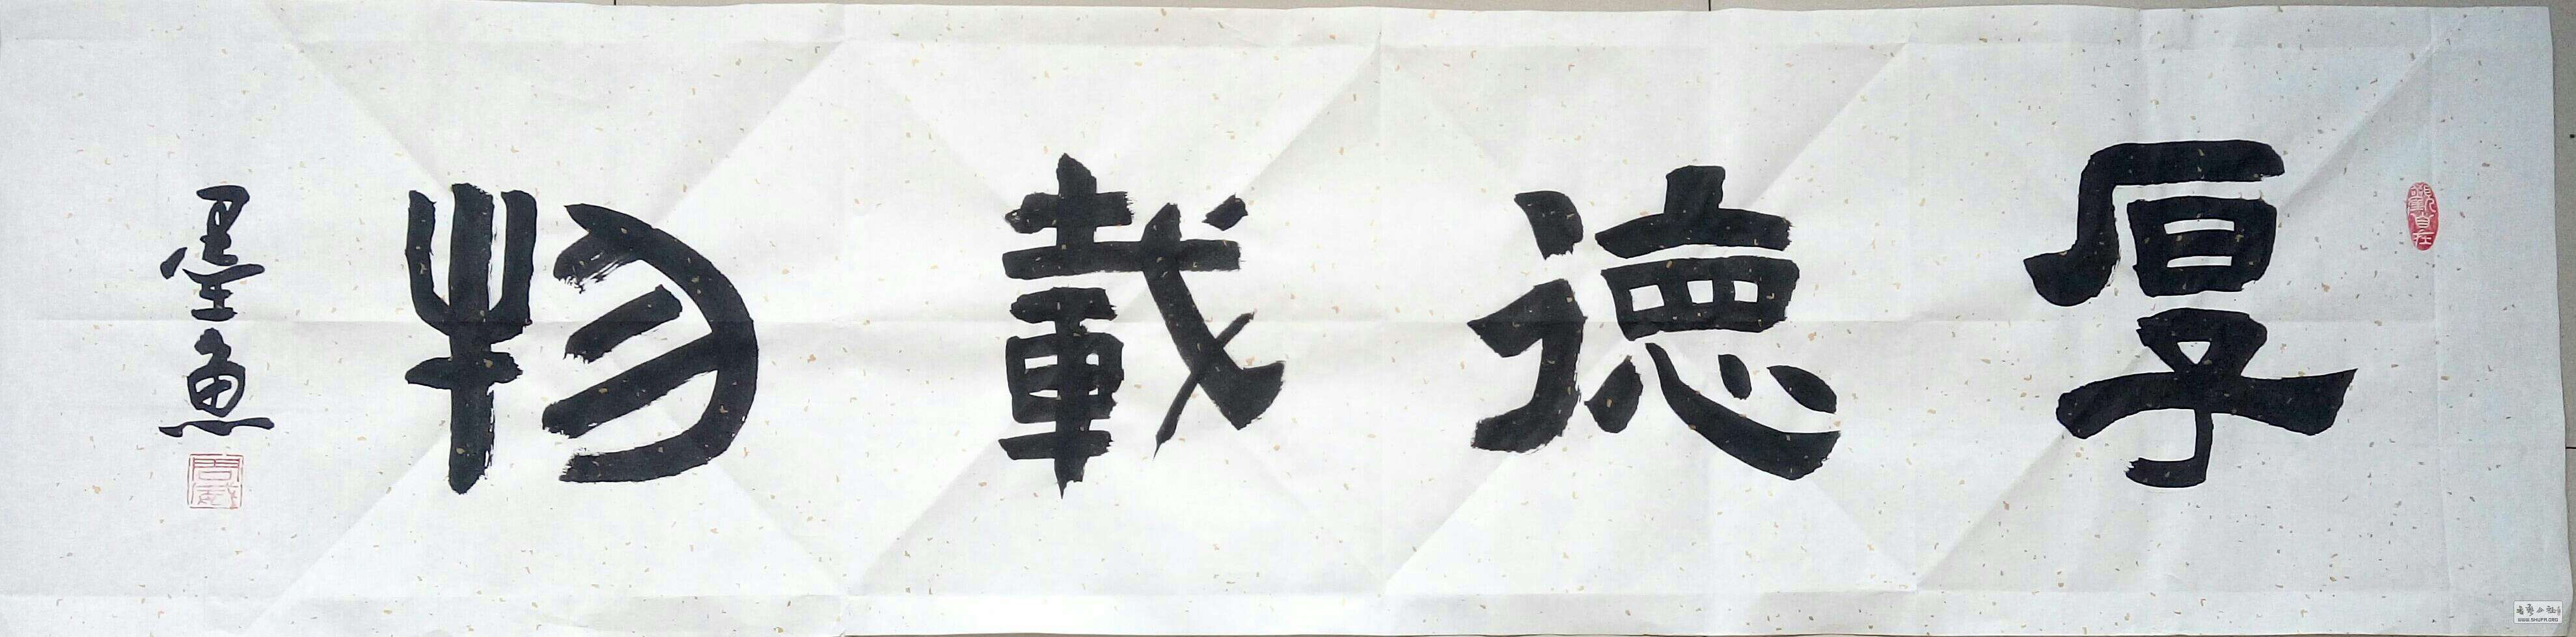 厚德載物
墨魚
觀自在
WWW.SHUFA.ORG